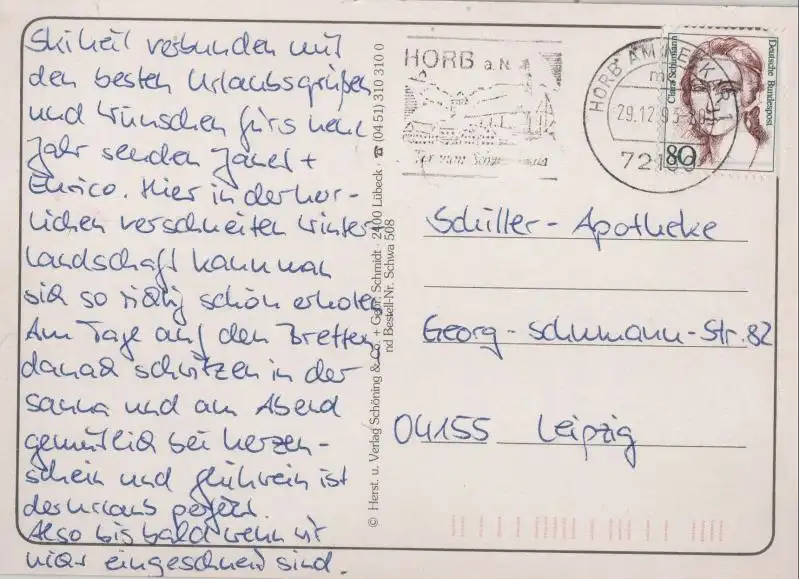 Skiheil verbunden mit
den besten Urlaubsgrüßen
und Wünschen fürs neue
Jahr senden Janet +
Enrico. Hier in der herr-
lichen verschneiten Winter-
landschaft kann man
sich so richtig schön erholen
Am Tage auf den Brettern,
danach schwitzen in der
Sauna und am Abend
gemütlich bei Kerzen-
schein und Glühwein ist
der Urlaub perfekt.
Also bis bald wenn wir
nicht eingeschneit sind.
© Herst. u. Verlag Schöning & Co. + Gebr. Schmidt · 2400 Lübeck · ☎ (04 51) 310 310 0
nd Bestell-Nr. Schwa 508
HORB a.N.
HORB AM NECKAR 1
m
29.12.93-20
72160
Clara Schumann
Deutsche Bundespost
80
Schiller-Apotheke
Georg-Schumann-Str. 82
04155 Leipzig